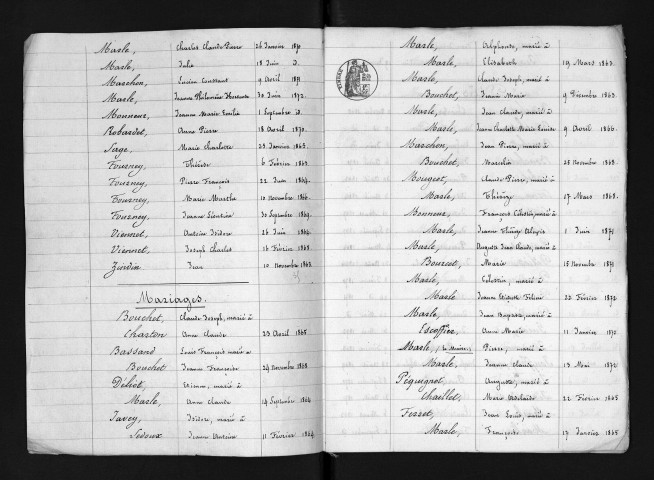 Marle, Charles Claude Pierre 26 Janvier 1870
Marle, Julie 18 Juin d.
Marchon, Lucien Constant 9 Avril 1871
Marle, Jeanne Philomène Hortense 30 Juin 1872.
Monneur, Jeanne Marie Emilie 1 Septembre d.
Robardet, Anne Pierre 18 Avril 1870.
Serge, Marie Charlotte 25 Janvier 1865.
Tourney, Thérèse 6 Février 1863.
Tourney, Pierre François 22 Juin 1864.
Tourney, Marie Marthe 10 Novembre 1866.
Tourney, Jeanne 30 Septembre 1869.
Viennet, Antoine Isidore 26 Juin 1864.
Viennet, Joseph Charles 16 Février 1868.
Jean 10 Novembre 1863.
Mariages.
Bouchet, Claude Joseph, marié à
Charton Anne Claude 23 Avril 1865
Bassand Louis François marié à
Bouchet Jeanne Françoise 24 Novembre 1868
Déliot, Etienne, marié à
Marle, Anne Claude 14 Septembre 1864
Javey, Isidore, marié à
Sedoux Jeanne Antoine 11 Février 1864
Marle, Alphonse, marié à
Marle, Elisabeth 19 Mars 1863.
Marle, Claude Joseph, marié à
Bouchet, Jeanne Marie 9 Décembre 1863.
Marle, Jean Claude, marié à
Marle, Jeanne Charlotte Marie Louise 9 Avril 1866.
Marchon, Jean Pierre, marié à
Bouchet, 25 Novembre 1868.
Mougeot, Claude Pierre, marié à
Marle, Thérèze 17 Mars 1868.
Monneur, François Célestin, marié à
Marle, Jeanne 1 Juin 1871
Marle, Auguste Jean Claude, marié à
Bourcet, Marie 15 Novembre 1871
Marle, Célestin, marié à
Marle Jeanne 22 Février 1872
Marle, Jean Baptiste, marié à
Escoffier, Anne Marie 11 Janvier 1870
Marle, Pierre, marié à
Marle, Jeanne Claude 13 Mai 1872
Péquignet, Auguste, marié à
Chaillet, Marie Adélaïde 22 Février 1865
Ferret, Jean Louis, marié à
Marle, Françoise 17 Janvier 1865